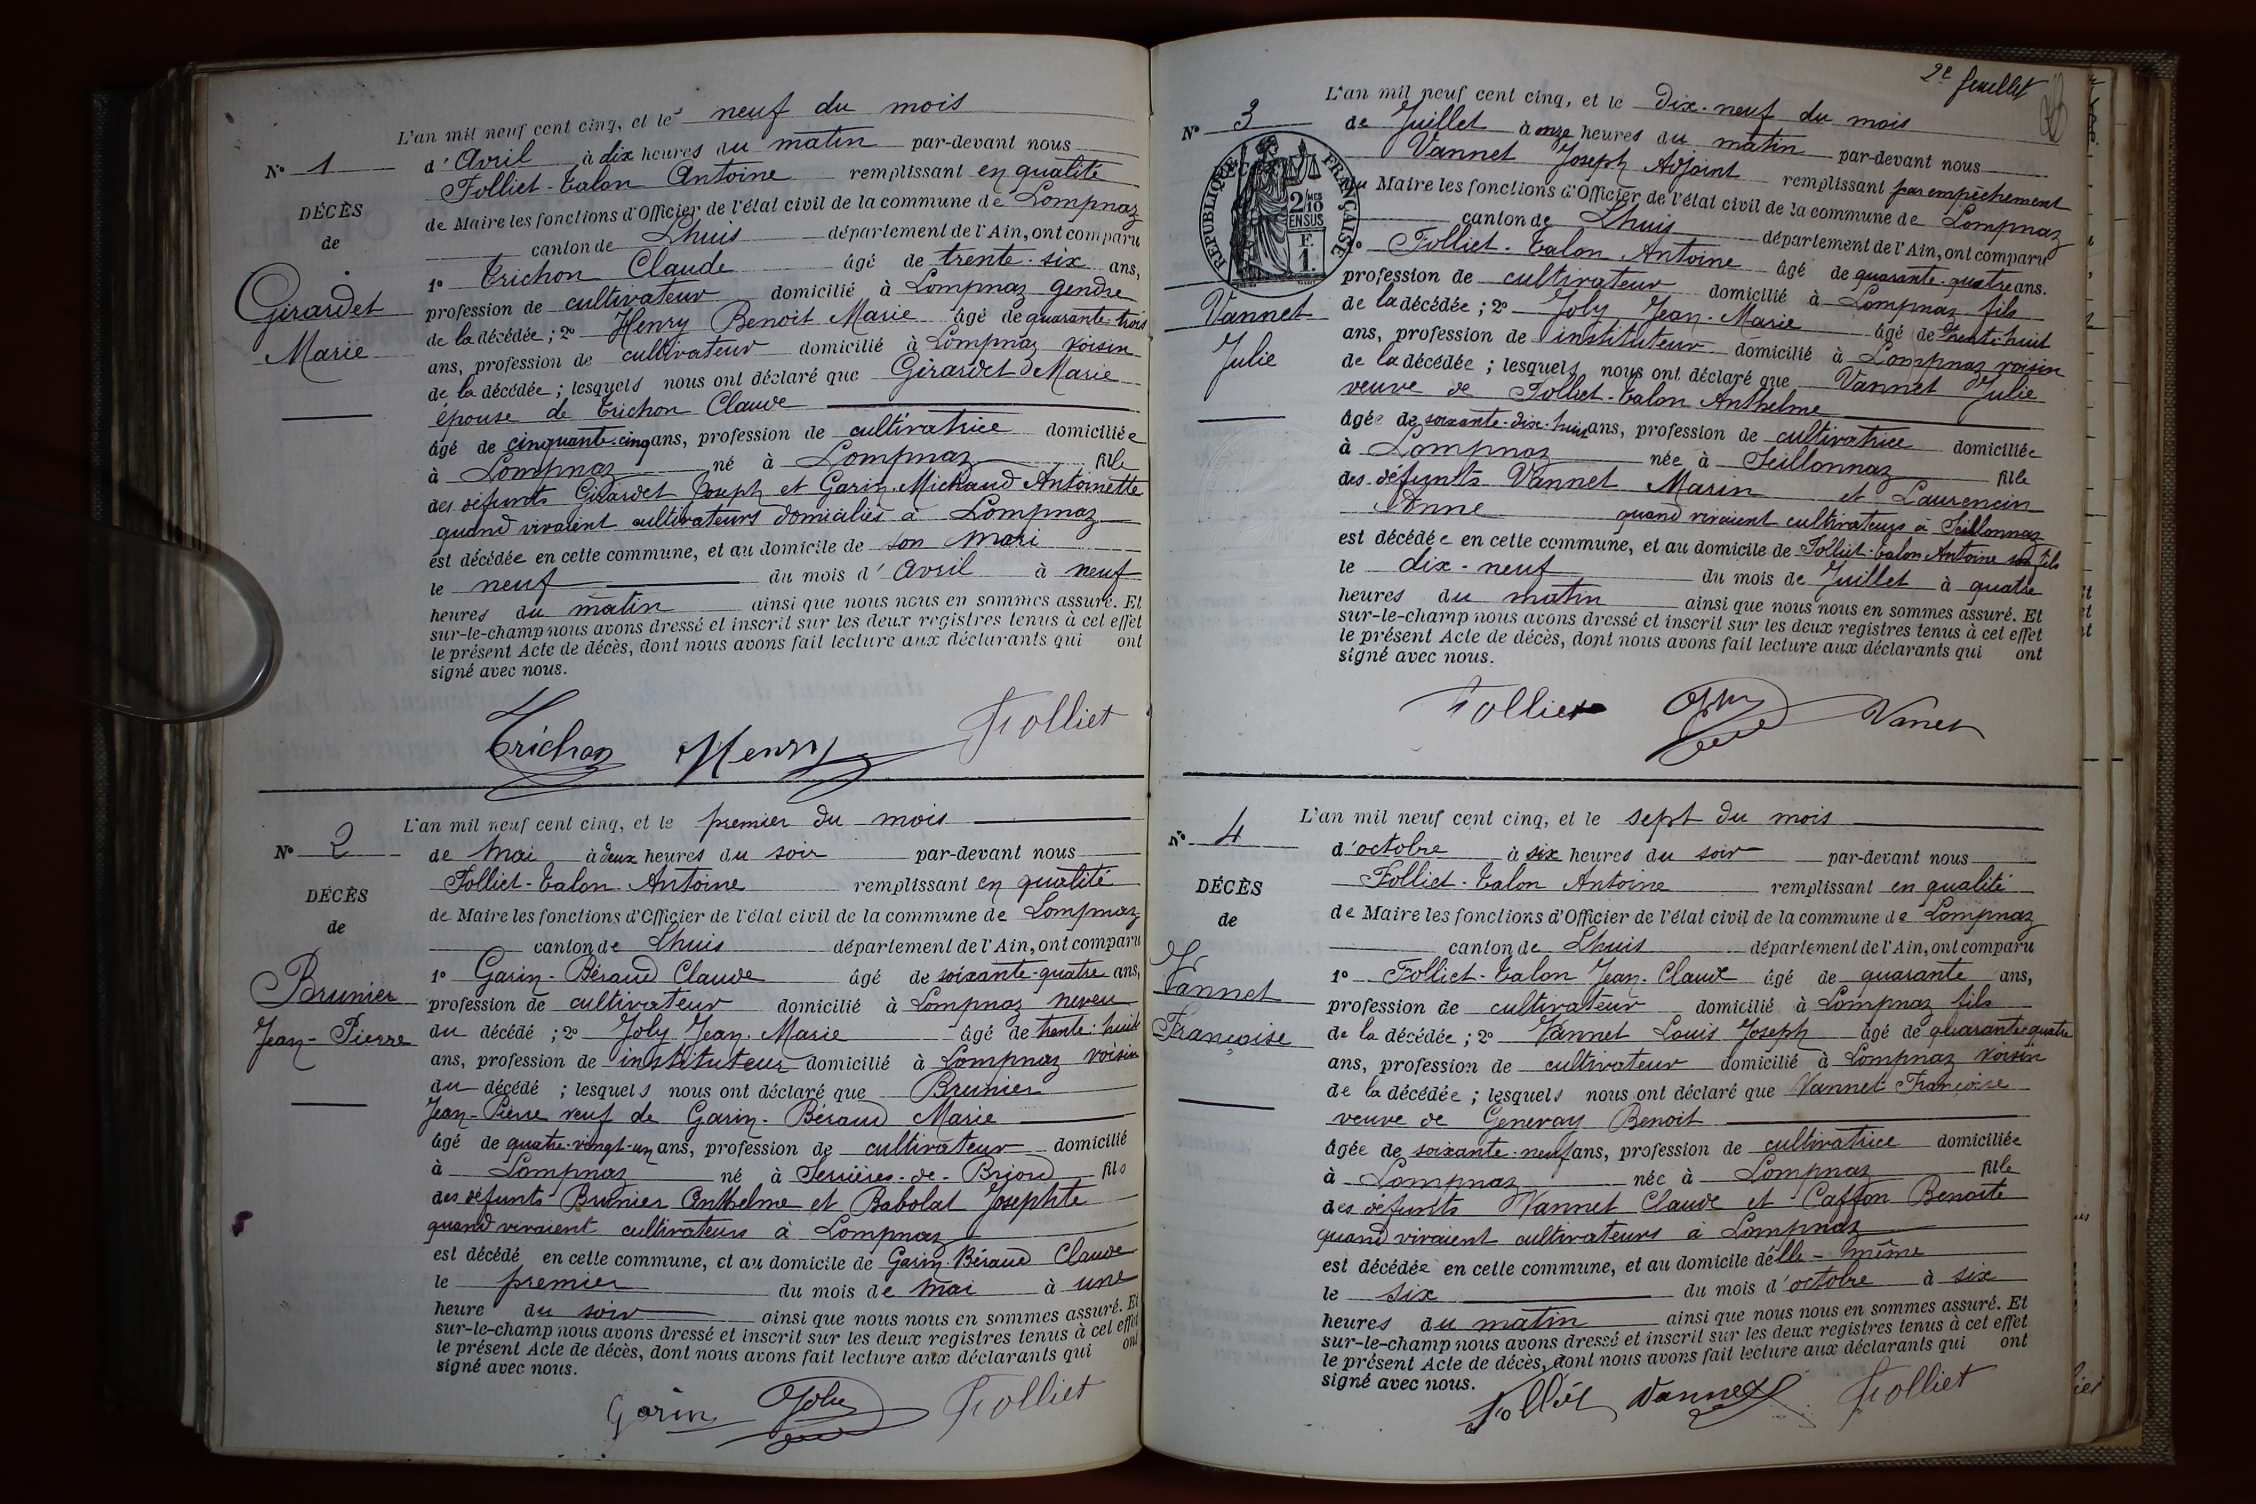 L'an mil neuf cent cinq, et le neuf du mois
N° 1
d'Avril à dix heures du matin par-devant nous
Folliet-Talon Antoine remplissant en qualité
DÉCÈS
de Maire les fonctions d'Officier de l'état civil de la commune de Lompnaz
de
canton de Lhuis département de l'Ain, ont comparu
1° Trichon Claude âgé de trente-six ans,
Girardet
profession de cultivateur domicilié à Lompnaz gendre
de la décédée ; 2° Henry Benoit Marie âgé de quarante-trois
Marie
ans, profession de cultivateur domicilié à Lompnaz voisin
de la décédée ; lesquels nous ont déclaré que Girardet Marie
épouse de Trichon Claude
âgé de cinquante-cinq ans, profession de cultivatrice domiciliée
à Lompnaz né à Lompnaz fille
des défunts Girardet Joseph et Garin-Michaud Antoinette
quand vivaient cultivateurs domiciliés à Lompnaz
est décédée en cette commune, et au domicile de son mari
le neuf du mois d'Avril à neuf
heures du matin ainsi que nous nous en sommes assuré. Et
sur-le-champ nous avons dressé et inscrit sur les deux registres tenus à cet effet
le présent Acte de décès, dont nous avons fait lecture aux déclarants qui ont
signé avec nous.
Trichon Henry Folliet
L'an mil neuf cent cinq, et le premier du mois
N° 2
de Mai à deux heures du soir par-devant nous
Folliet-Talon Antoine remplissant en qualité
DÉCÈS
de Maire les fonctions d'Officier de l'état civil de la commune de Lompnaz
de
canton de Lhuis département de l'Ain, ont comparu
1° Garin-Béraud Claude âgé de soixante-quatre ans,
Brunier
profession de cultivateur domicilié à Lompnaz neveu
Jean-Pierre
du décédé ; 2° Joly Jean-Marie âgé de trente-huit
ans, profession de instituteur domicilié à Lompnaz voisin
du décédé ; lesquels nous ont déclaré que Brunier
Jean-Pierre veuf de Garin-Béraud Marie
âgé de quatre-vingt-un ans, profession de cultivateur domicilié
à Lompnaz né à Serrières-de-Briord fils
des défunts Brunier Anthelme et Babolat Josephte
quand vivaient cultivateurs à Lompnaz
est décédé en cette commune, et au domicile de Garin-Béraud Claude
le premier du mois de Mai à une
heure du soir ainsi que nous nous en sommes assuré. Et
sur-le-champ nous avons dressé et inscrit sur les deux registres tenus à cet effet
le présent Acte de décès, dont nous avons fait lecture aux déclarants qui ont
signé avec nous.
Garin Joly Folliet
2e feuillet
L'an mil neuf cent cinq, et le dix-neuf du mois
N° 3
de Juillet à onze heures du matin par-devant nous
Vannet Joseph Adjoint remplissant par empêchement
RÉPUBLIQUE FRANÇAISE
2/10 MES
EN SUS
F.
1.
du Maire les fonctions d'Officier de l'état civil de la commune de Lompnaz
canton de Lhuis département de l'Ain, ont comparu
1° Folliet-Talon Antoine âgé de quarante-quatre ans.
profession de cultivateur domicilié à Lompnaz fils
Vannet
de la décédée ; 2° Joly Jean-Marie âgé de trente-huit
Julie
ans, profession de instituteur domicilié à Lompnaz voisin
de la décédée ; lesquels nous ont déclaré que Vannet Julie
veuve de Folliet-Talon Anthelme
âgée de soixante-dix-huit ans, profession de cultivatrice domiciliée
à Lompnaz née à Seillonnaz fille
des défunts Vannet Marin et Laurencin
Anne quand vivaient cultivateurs à Seillonnaz
est décédée en cette commune, et au domicile de Folliet-Talon Antoine son fils
le dix-neuf du mois de Juillet à quatre
heures du matin ainsi que nous nous en sommes assuré. Et
sur-le-champ nous avons dressé et inscrit sur les deux registres tenus à cet effet
le présent Acte de décès, dont nous avons fait lecture aux déclarants qui ont
signé avec nous.
Folliet Joly Vanet
L'an mil neuf cent cinq, et le sept du mois
N° 4
d'octobre à six heures du soir par-devant nous
Folliet-Talon Antoine remplissant en qualité
DÉCÈS
de Maire les fonctions d'Officier de l'état civil de la commune de Lompnaz
de
canton de Lhuis département de l'Ain, ont comparu
1° Folliet-Talon Jean-Claude âgé de quarante ans,
Vannet
profession de cultivateur domicilié à Lompnaz fils
Françoise
de la décédée ; 2° Vannet Louis Joseph âgé de quarante-quatre
ans, profession de cultivateur domicilié à Lompnaz voisin
de la décédée ; lesquels nous ont déclaré que Vannet Françoise
veuve de Genevay Benoit
âgée de soixante-neuf ans, profession de cultivatrice domiciliée
à Lompnaz née à Lompnaz fille
des défunts Vannet Claude et Caffon Benoite
quand vivaient cultivateurs à Lompnaz
est décédée en cette commune, et au domicile d'elle-même
le six du mois d'octobre à six
heures du matin ainsi que nous nous en sommes assuré. Et
sur-le-champ nous avons dressé et inscrit sur les deux registres tenus à cet effet
le présent Acte de décès, dont nous avons fait lecture aux déclarants qui ont
signé avec nous.
Folliet Vannet Folliet